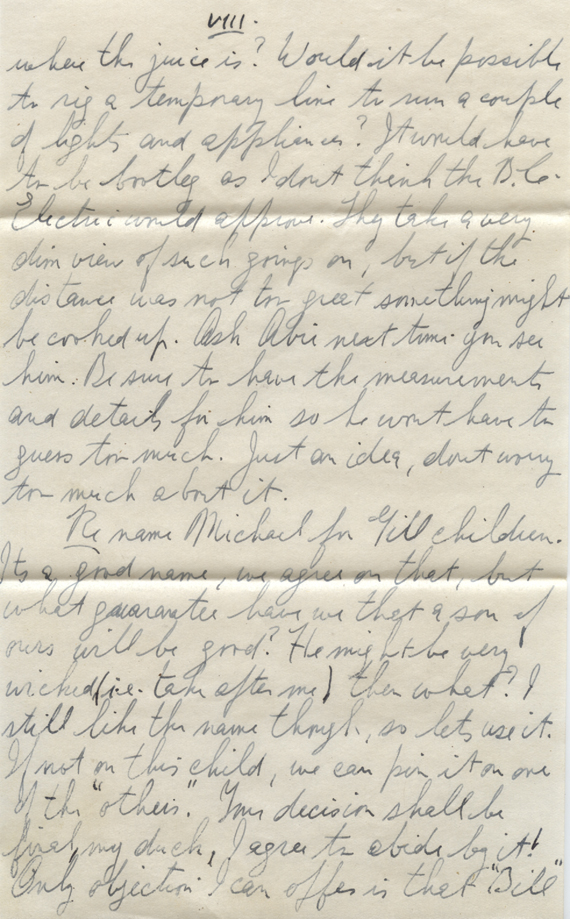 VIII.
where the juice is? Would it be possible
to rig a temporary line to run a couple
of lights and appliances? It would have
to be bootleg as I dont think the B.C.
Electric would approve. They take a very
dim view of such goings on, but if the
distance was not too great something might
be cooked up. Ask Abie next time you see
him. Be sure to have the measurements
and details for him so he wont have to
guess too much. Just an idea, dont worry
too much about it.
Re name Michael for Gill children.
Its a good name, we agree on that, but
what guarantee have we that a son of
ours will be good? He might be very
wicked (i.e. take after me) then what? I
still like the name though, so lets use it.
If not on this child, we can pin it on one
of the "others". Your decision shall be
final, my duck, I agree to abide by it!
Only objection I can offer is that "Bill"